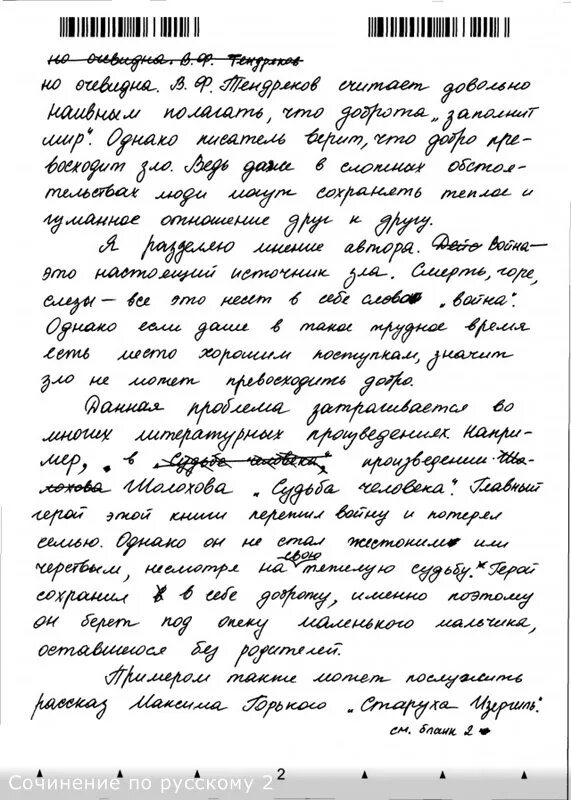 но очевидна. В.Ф. Тендреков
но очевидна. В.Ф. Тендреков считает довольно
наивным полагать, что доброта „заполнит
мир“. Однако писатель верит, что добро пре-
восходит зло. Ведь даже в сложных обстоя-
тельствах люди могут сохранять теплое и
гуманное отношение друг к другу.
Я разделяю мнение автора. Дейс Война —
это настоящий источник зла. Смерть, горе,
слезы — все это несет в себе слово „война“.
Однако если даже в такое трудное время
есть место хорошим поступкам, значит
зло не может превосходить добро.
Данная проблема затрагивается во
многих литературных произведениях. Напри-
мер, в „Судьба человека“, произведении Шо-
лохова Шолохова „Судьба человека“. Главный
герой этой книги пережил войну и потерял
семью. Однако он не стал жестоким или
черствым, несмотря на свою тяжелую судьбу. Герой
сохранил в себе доброту, именно поэтому
он берет под опеку маленького мальчика,
оставшегося без родителей.
Примером также может послужить
рассказ Максима Горького „Старуха Изергиль“.
см. бланк 2
2
Сочинение по русскому 2